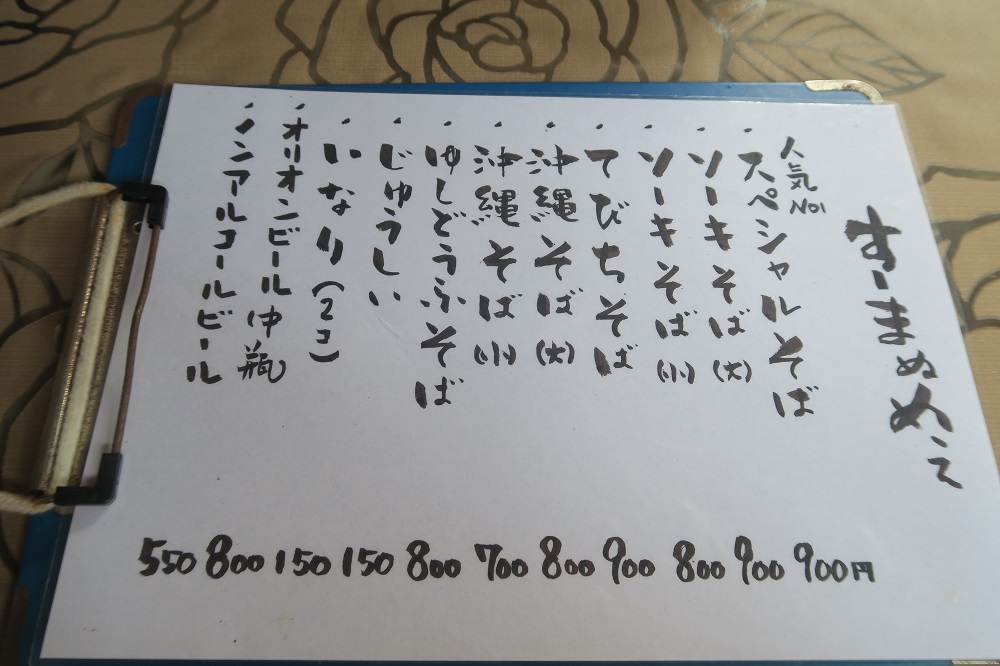 すーまぬめぇ
人気No1
・スペシャルそば 900円
・ソーキそば(大) 900
・ソーキそば(小) 800
・てびちそば 900
・沖縄そば(大) 800
・沖縄そば(小) 700
・ゆしどうふそば 800
・じゅうしい 150
・いなり(2コ) 150
・オリオンビール中瓶 800
・ノンアルコールビール 550